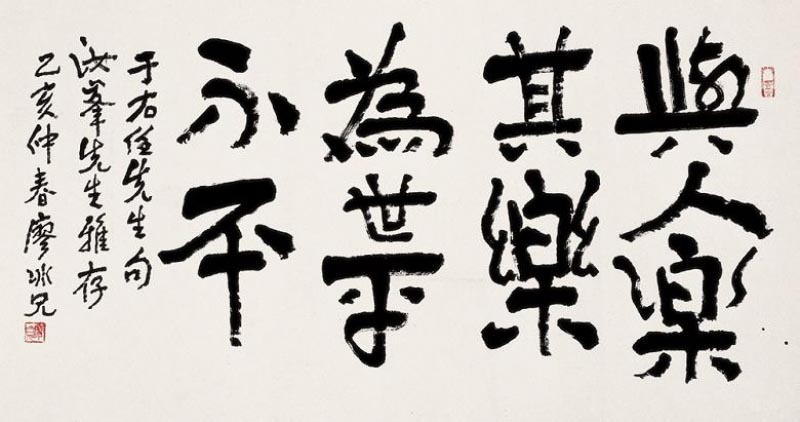 與人樂
其樂
為世平
不平
于右任先生句
汝峯先生雅存
乙亥仲春廖冰兄